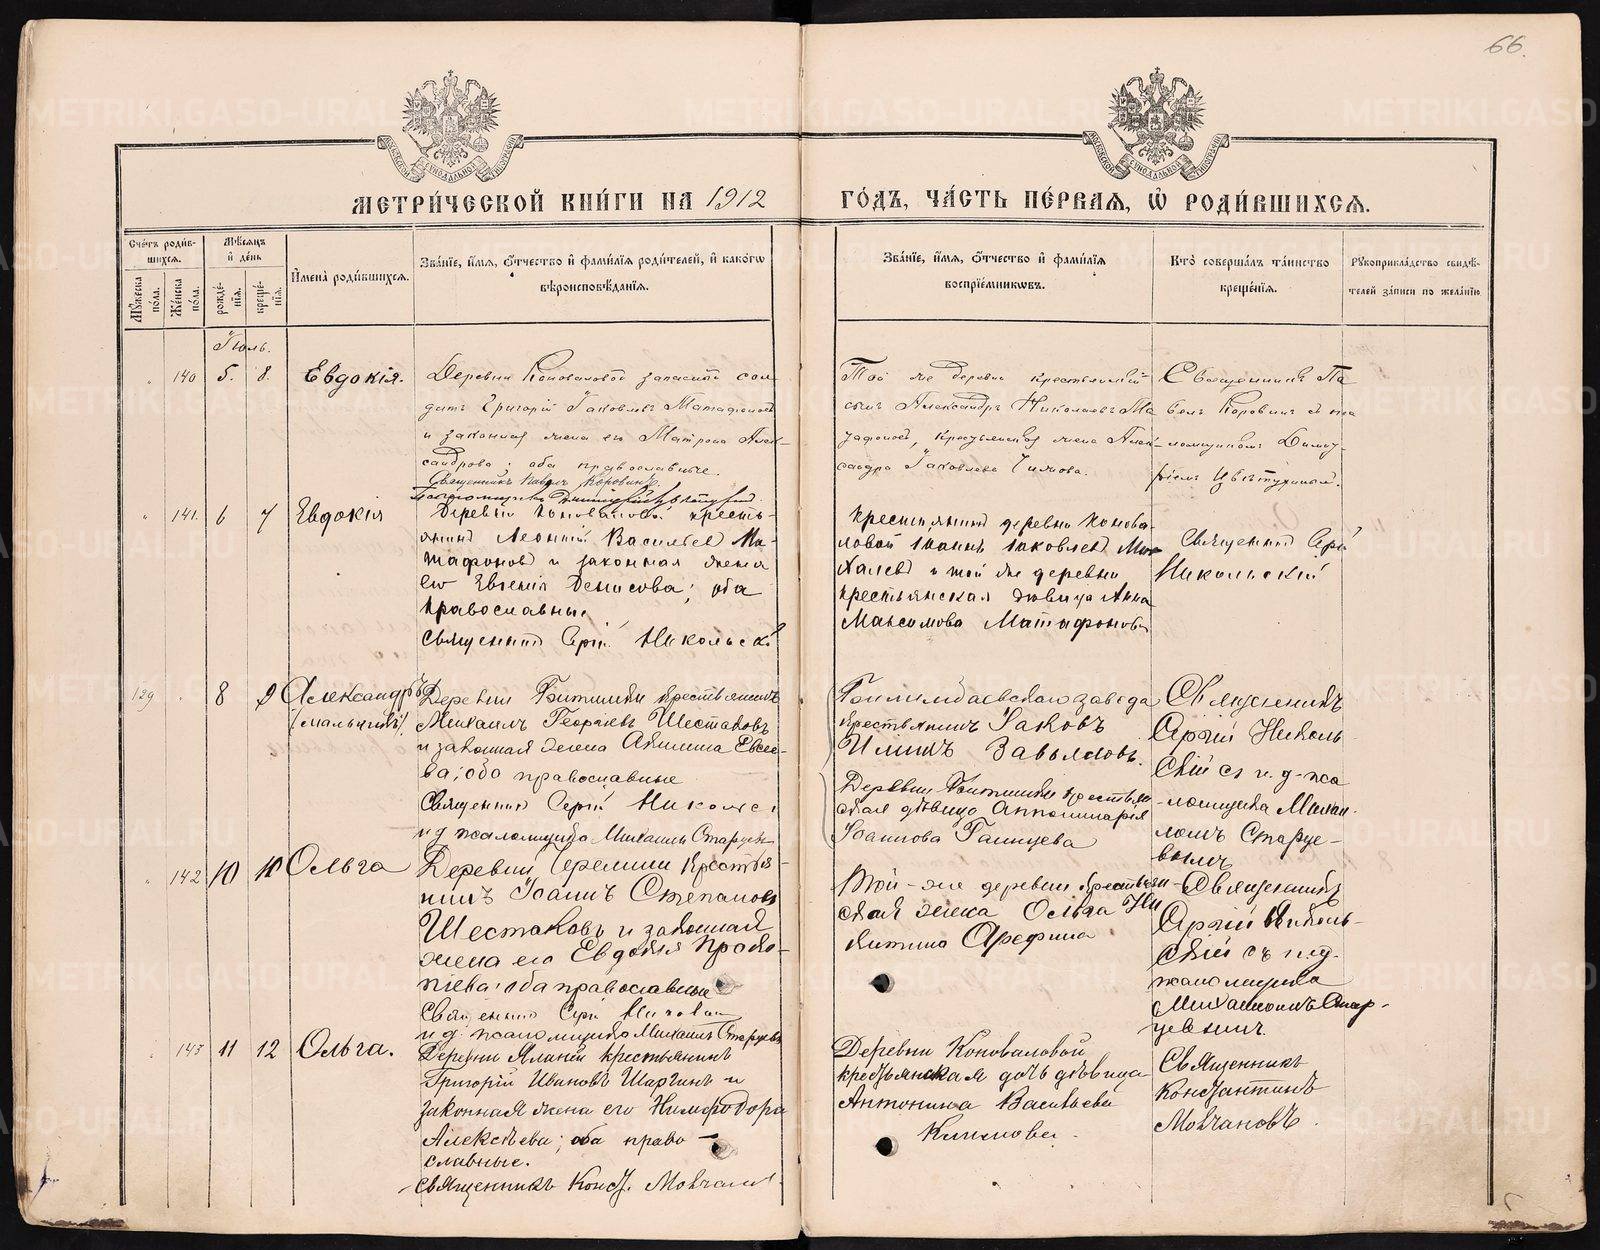 66.
МЕТРИ́ЧЕСКОЙ КНИ́ГИ НА 1912
ГО́ДЪ, ЧА́СТЬ ПЕ́РВАЯ, Ѡ҆ РОДИ́ВШИХСЯ.
Сче́тъ роди́в-
шихся.
Мѣ́сяцъ
и҆ де́нь
Мꙋ́жеска по́ла.
Же́нска по́ла.
рожде́-
нїѧ.
креще́-
нїѧ.
И҆мена̀ роди́вшихся.
Зва́нїе, и҆́мѧ, ѻ҆́тчество и҆ фами́лїѧ роди́телей, и҆ како́гѡ
вѣроисповѣ́данїѧ.
Зва́нїе, и҆́мѧ, ѻ҆́тчество и҆ фами́лїѧ
воспрїе́мникѡвъ.
Кто̀ соверша́лъ та́инство
креще́нїѧ.
Рꙋкоприкла́дство свидѣ́-
телей за́писи по жела́нїю
Іюль.
140 5. 8. Евдокія.
Деревни Коноваловой запасной сол-
датъ Григорій Іаковлевъ Матафоновъ
и законная жена его Матрона Алек-
сандрова; оба православные.
Священникъ Павелъ Коровинъ.
Той же деревни крестьянскій
сынъ Александръ Николаевъ Ма
тафоновъ, крестьянская жена Алек-
сандра Іаковлева
Священникъ Па
велъ Коровинъ съ пса
ломщикомъ Димит-
ріемъ
141. 6 7 Евдокія
Деревни Коноваловой кресть-
янинъ Леонтій Васильев Ма-
тафоновъ и законная жена
его Евгенія Денисова; оба
православные
Священникъ Сергій Никольскій
Крестьянинъ деревни Конова-
ловой Іоаннъ Іаковлевъ Ми
халевъ и той же деревни
крестьянская дѣвица Анна
Максимова Матафонова
Священникъ Сергій
Никольскій
129 8 9 Александръ
(мальчикъ)
Деревни Битимки крестьянинъ
Михаилъ Георгіевъ Шестаковъ
и законная жена Акилина Евсее-
ва; оба православные
Священникъ Сергій Никольскі
и д псаломщика Михаилъ Старцевъ
Билимбаевскаго завода
крестьянинъ Іаковъ
Илiинъ Завьяловъ.
Деревни Битимки крестьян
ская дѣвица Апполинарія
Іоаннова Галицева
Священникъ
Сергій Николь-
скій съ и. д. пса
-ломщика Михаи-
ломъ Старце-
вымъ
142 10 10 Ольга
Деревни Черемши крестья-
нинъ Іоаннъ Степановъ
Шестаковъ и законная
жена его Евдокія Проко-
піева; оба православные
Священникъ Сергій Никольскі
и д. псаломщика Михаилъ Старцевъ
Той-же деревни крестьян-
ская жена Ольга Ни
китина Арефина
Священникъ
Сергій Николь-
скій съ и. д.
псаломщика
Михаиломъ Стар-
цевымъ.
143 11 12 Ольга.
Деревни Яланки крестьянинъ
Григорій Ивановъ Шаргинъ и
законная жена его Нимфодора
Алексѣева; оба право-
славные.
Священникъ Конст. Молчанов
Деревни Коноваловой
крестьянская дочь дѣвица
Антонина Васильева
Климова.
Священникъ
Константинъ
Молчановъ.